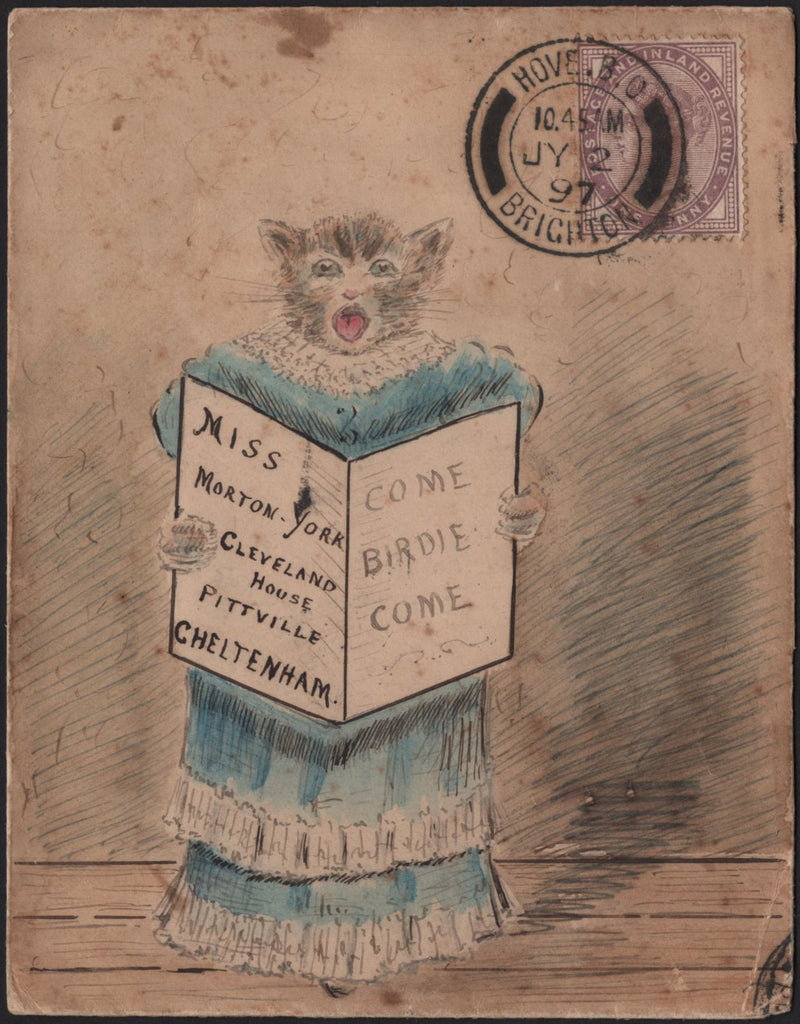 HOVE. B.O.
10.45 AM
JY 2
97
BRIGHTON
POSTAGE AND INLAND REVENUE
ONE PENNY
MISS
MORTON-YORK
CLEVELAND
HOUSE
PITTVILLE
CHELTENHAM.
COME
BIRDIE
COME